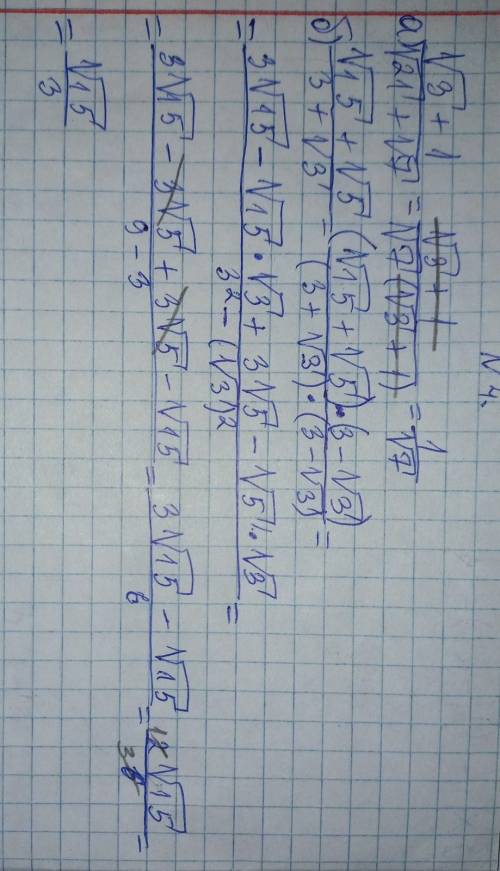 N 4.
а) (√3 + 1)/(√21 + √7) = (√3 + 1)/(√7(√3 + 1)) = 1/√7
б) (√15 + √5)/(3 + √3) = ((√15 + √5)·(3 - √3))/((3 + √3)·(3 - √3)) =
= (3√15 - √15·√3 + 3√5 - √5·√3)/(3² - (√3)²) =
= (3√15 - 3√5 + 3√5 - √15)/(9 - 3) = (3√15 - √15)/6 = (2√15)/(3 6) =
= √15/3